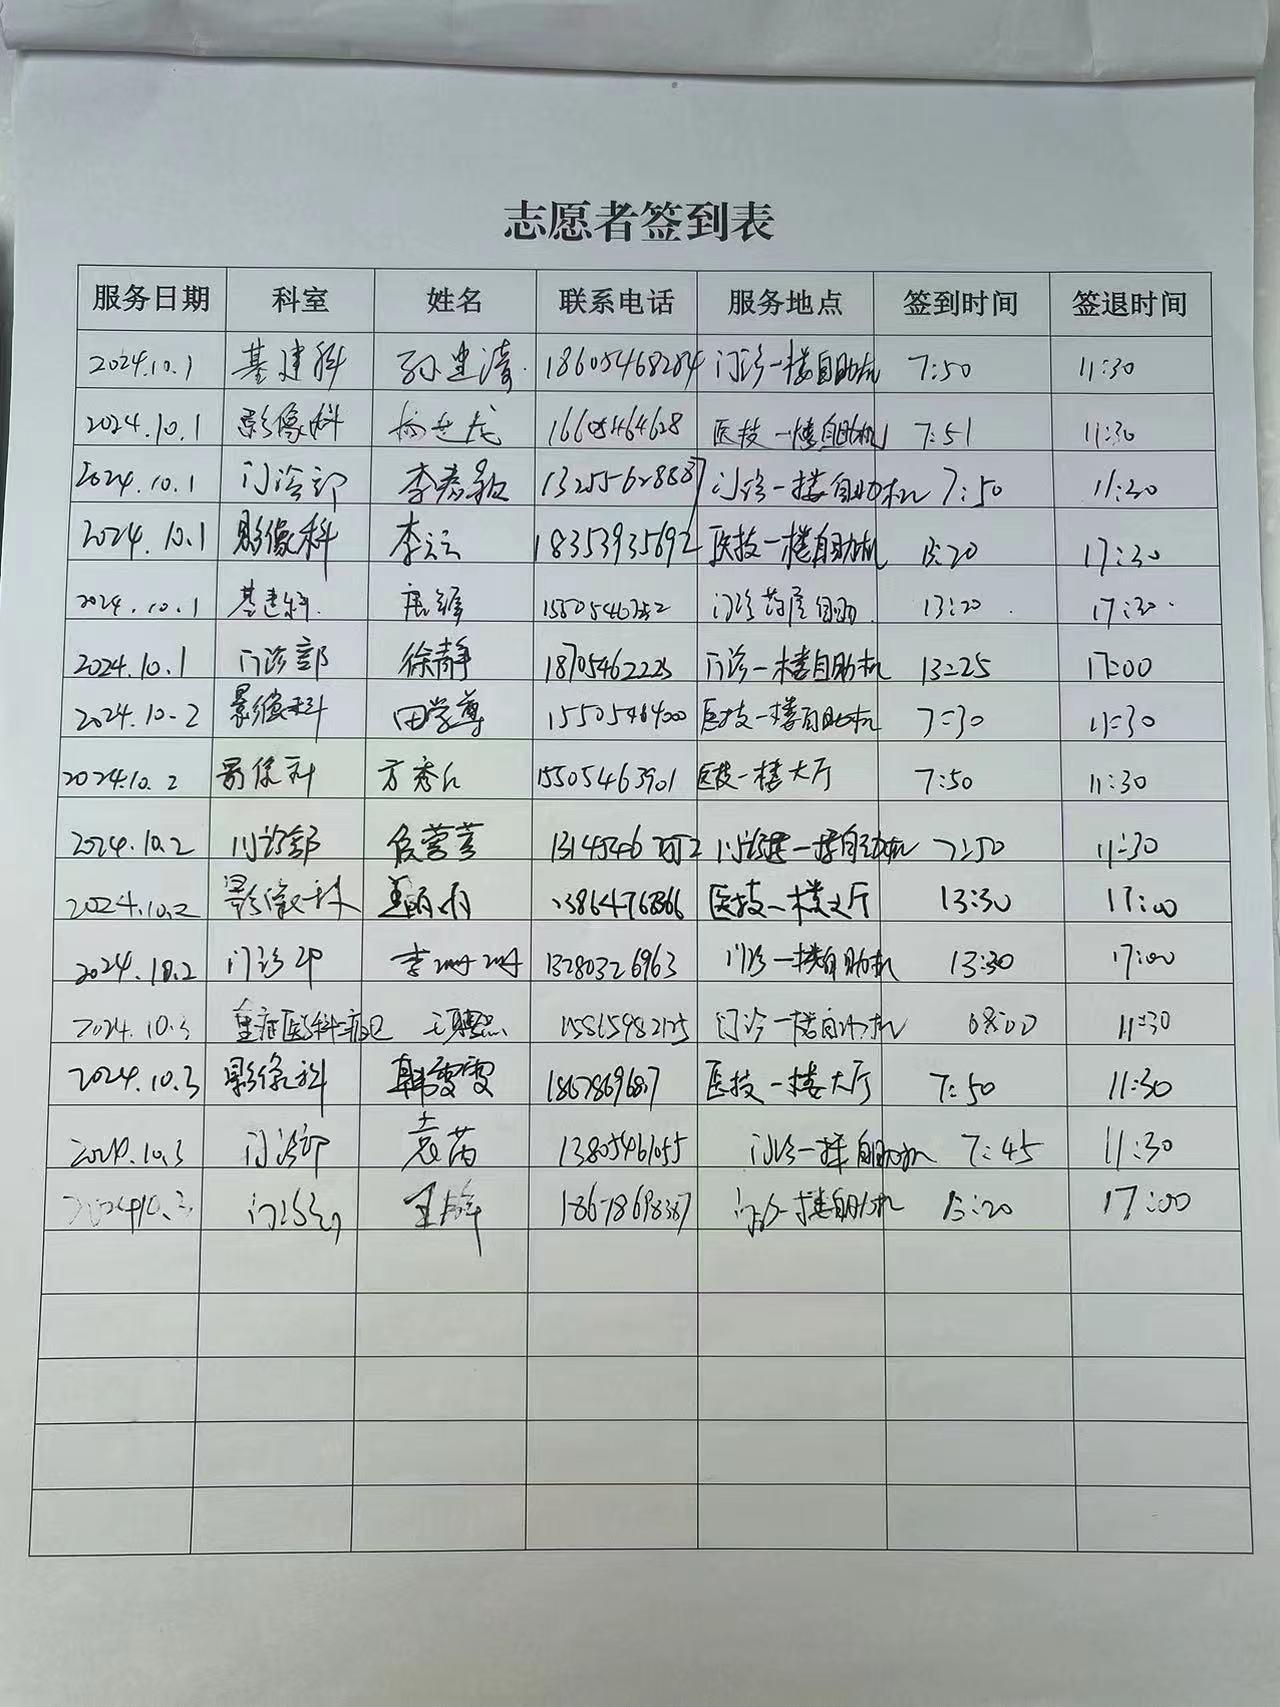 志愿者签到表
服务日期 科室 姓名 联系电话 服务地点 签到时间 签退时间
2024.10.1 基建科 孙建涛 18605468284 门诊一楼自助机 7:50 11:30
2024.10.1 影像科 16605464628 医技一楼自助机 7:51 11:30
2024.10.1 门诊部 李彦毅 13255628887 门诊一楼自助机 7:50 11:30
2024.10.1 影像科 李云 18353935692 医技一楼自助机 13:20 17:30
2024.10.1 基建科 门诊药房自助 13:20 17:30
2024.10.1 门诊部 徐静 18705462225 门诊一楼自助机 13:25 17:00
2024.10.2 影像科 田学尊 1550546400 医技一楼自助机 7:30 11:30
2024.10.2 影像科 方秀 15505463901 医技一楼大厅 7:50 11:30
2024.10.2 门诊部 侯营营 门诊一楼自助机 7:50 11:30
2024.10.2 影像科 医技一楼大厅 13:30 17:00
2024.10.2 门诊部 李珊珊 13280326963 门诊一楼自助机 13:30 17:00
2024.10.3 重症医学科二病区 15865982125 门诊一楼自助机 08:00 11:30
2024.10.3 影像科 韩雯雯 医技一楼大厅 7:50 11:30
2024.10.3 门诊部 袁芮 13805461055 门诊一楼自助机 7:45 11:30
2024.10.3 门诊部 18678698387 门诊一楼自助机 13:20 17:00